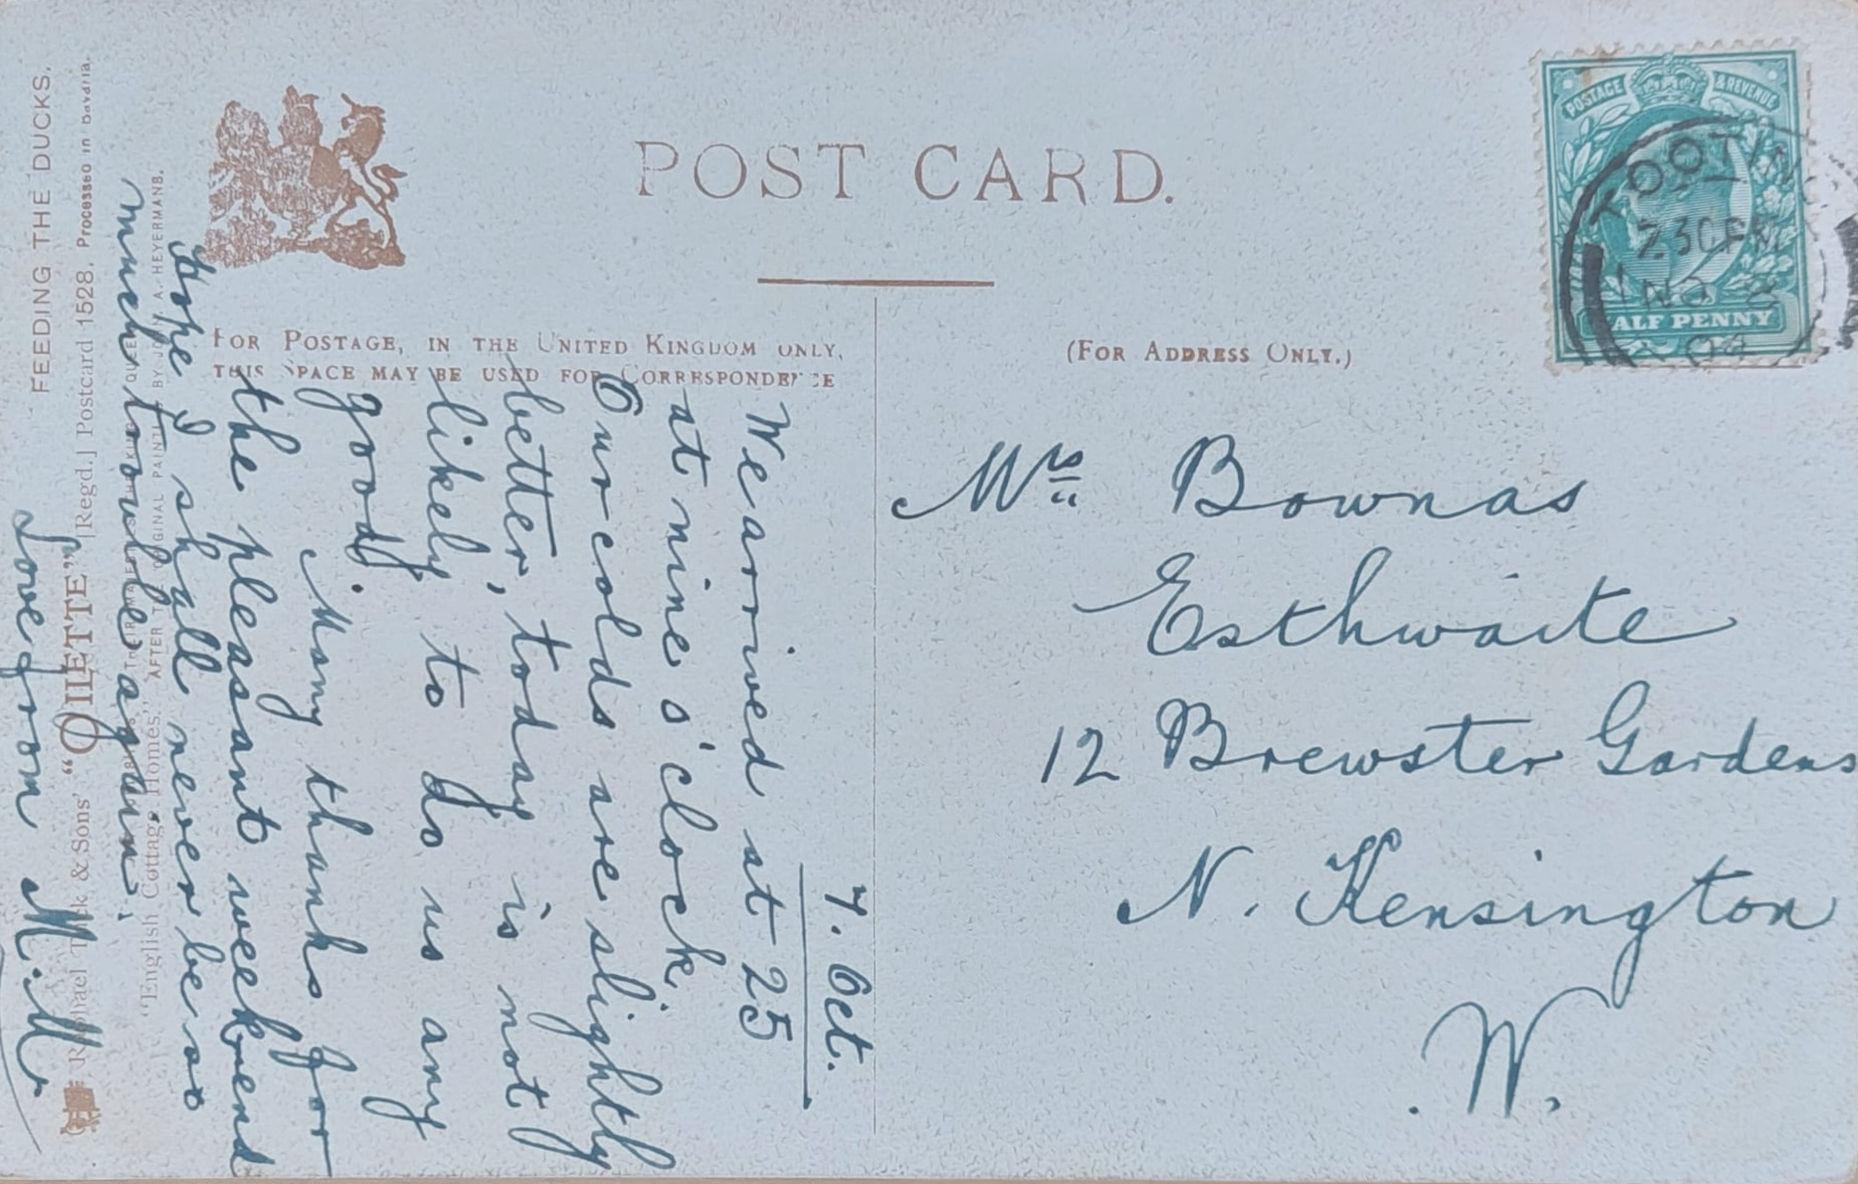 POST CARD.
FOR POSTAGE, IN THE UNITED KINGDOM ONLY,
THIS SPACE MAY BE USED FOR CORRESPONDENCE
(FOR ADDRESS ONLY.)
POSTAGE & REVENUE
HALF PENNY
TOOTIN
2 30 PM
NO
Mrs Bownas
Esthwaite
12 Brewster Gardens
N. Kensington
W.
7. Oct.
We arrived at 25
at nine o'clock.
Our colds are slightly
better, today is not
likely to do us any
good.
Many thanks for
the pleasant weekend
Hope I shall never be so
much trouble again.
Love from M.M.
"English Cottage Homes," AFTER THE ORIGINAL PAINTING BY JOHN A. HEYERMANS.
Raphael Tuck & Sons' "OILETTE" [Regd.] Postcard 1528. Processed in Bavaria.
FEEDING THE DUCKS.